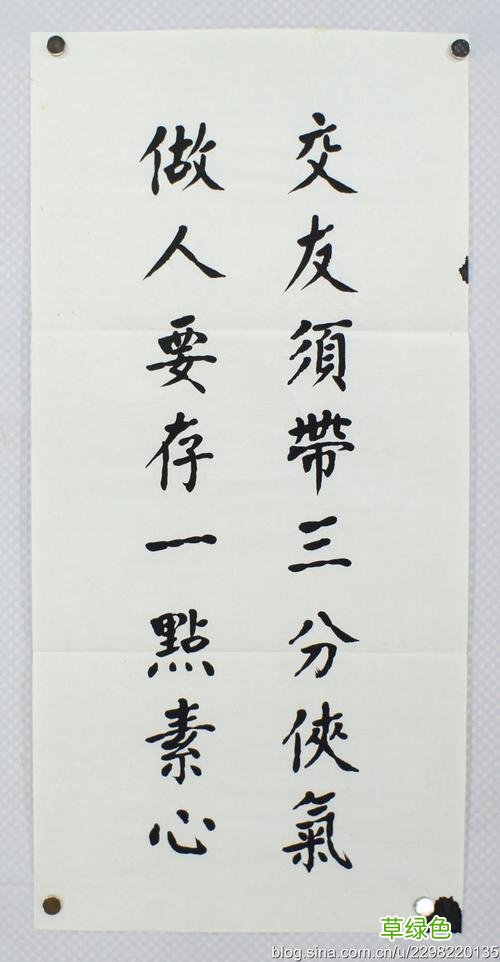 交友須帶三分俠氣
做人要存一點素心
草绿色
blog.sina.com.cn/u/2298220135